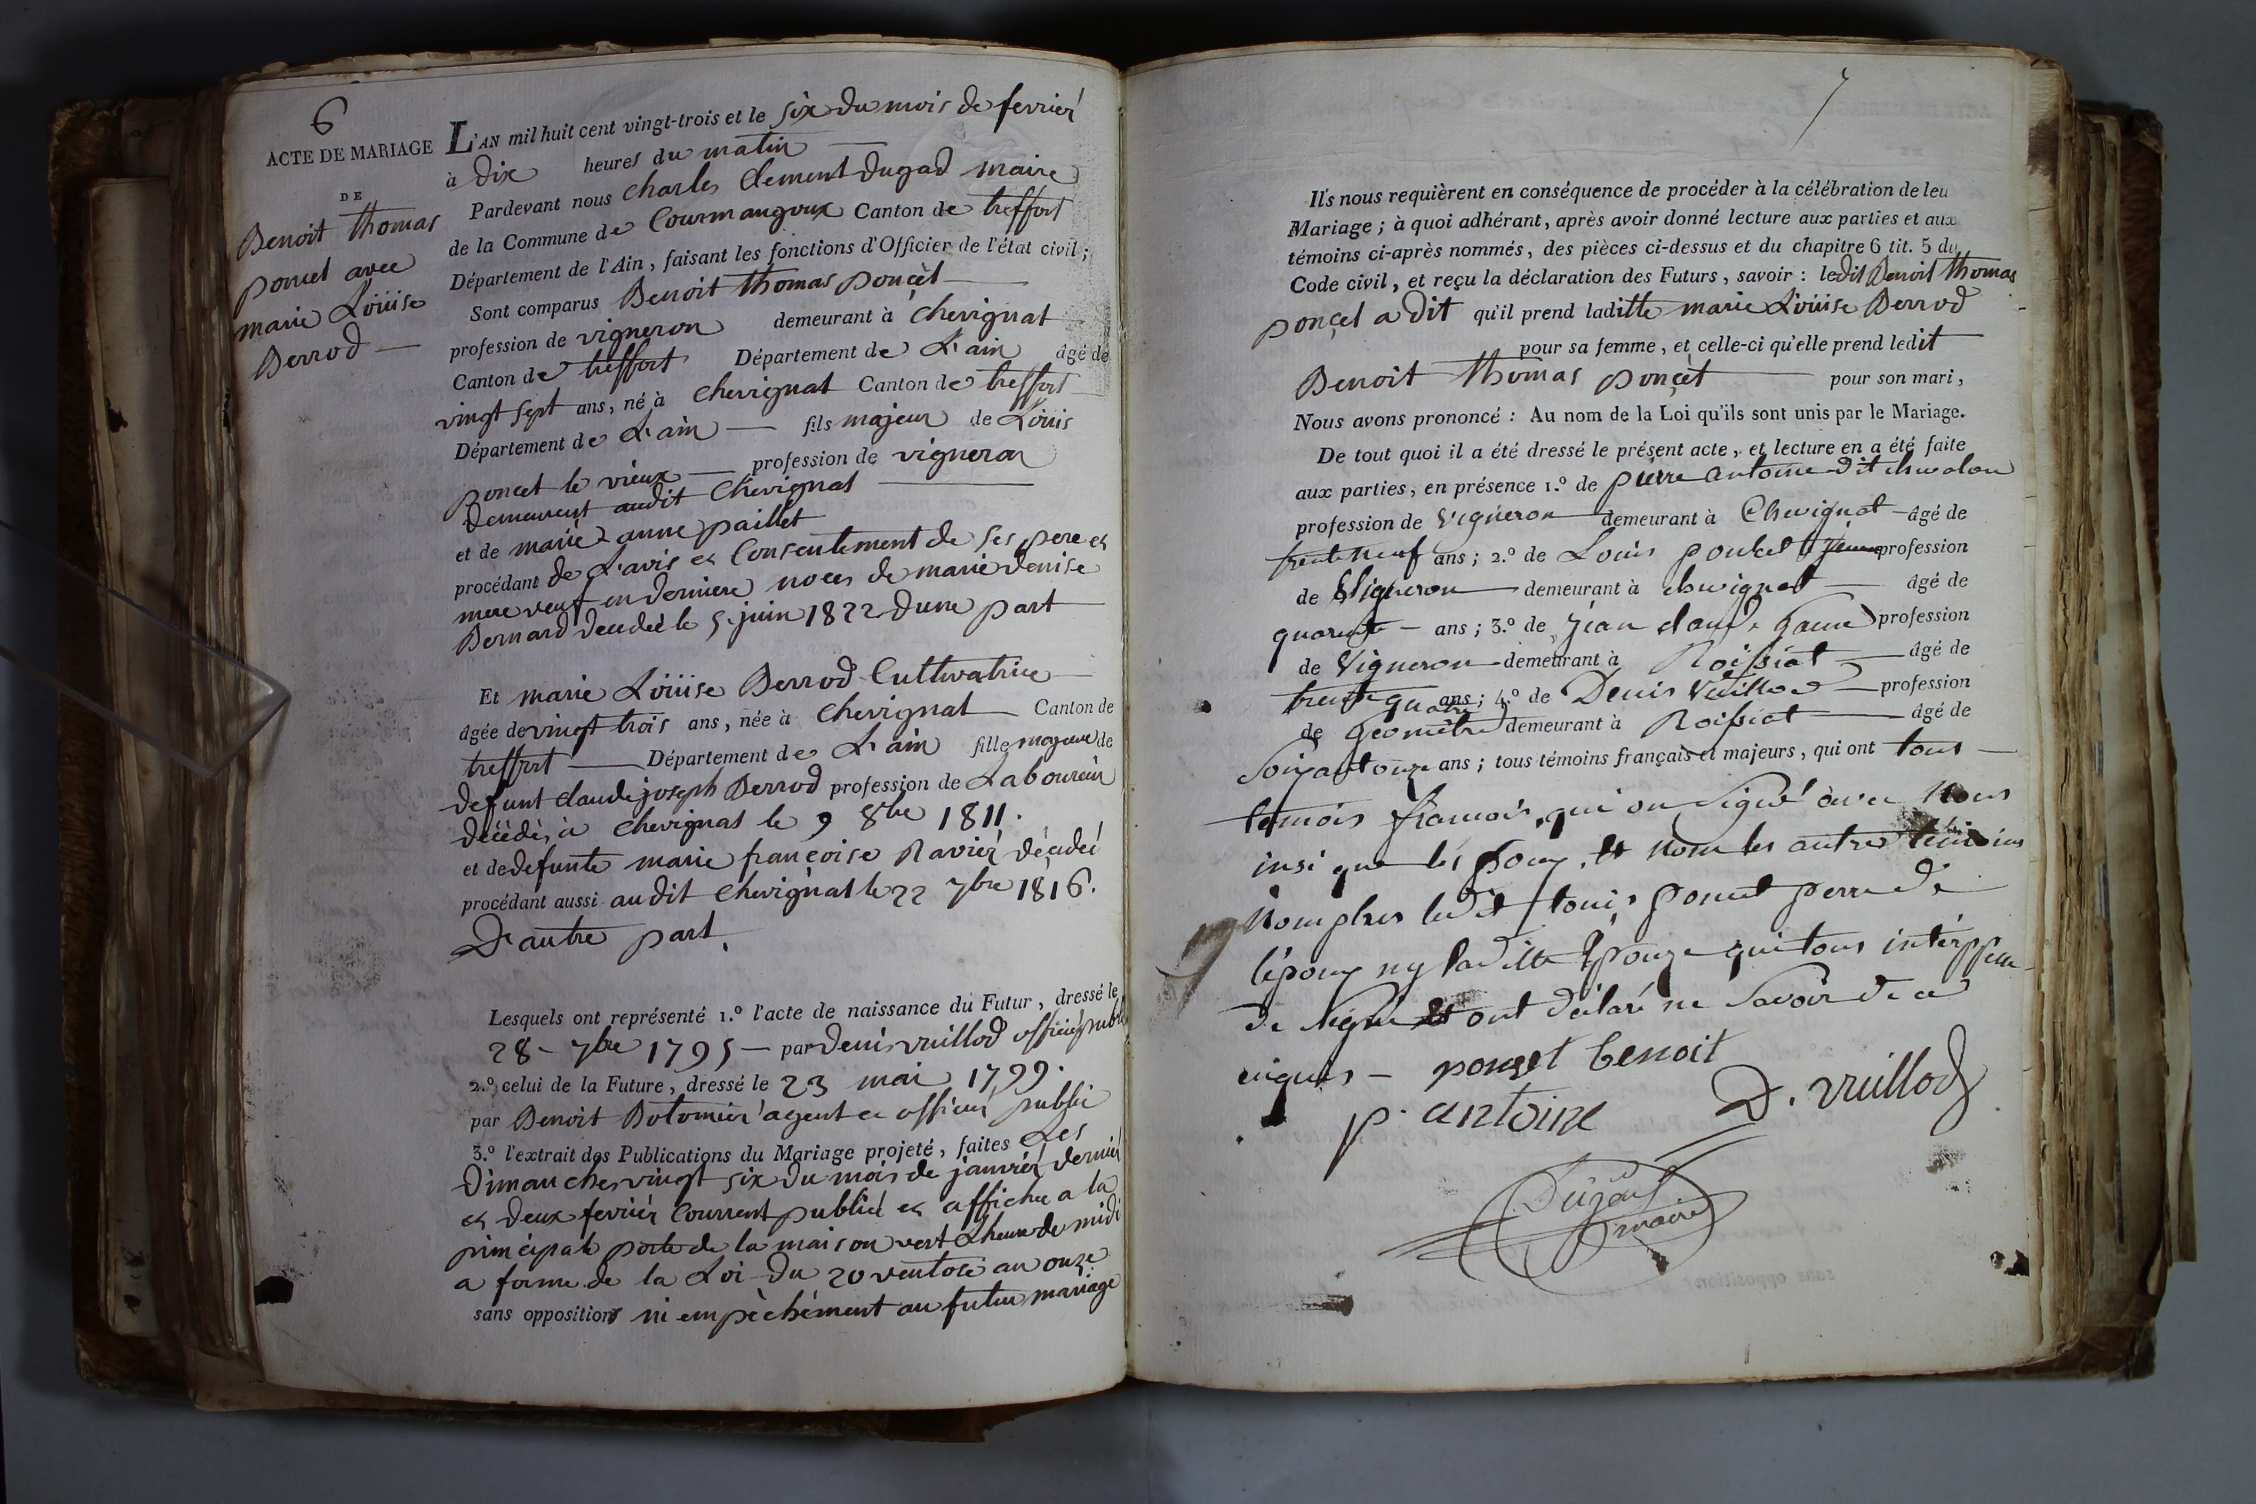 6
ACTE DE MARIAGE
DE
Benoit thomas
poncet avec
marie Löüise
Berrod
L'AN mil huit cent vingt-trois et le six du mois de fevriér
à dix heures du matin
Pardevant nous charles Clement Dugad maire
de la Commune de Courmangoux Canton de treffort
Département de l'Ain, faisant les fonctions d'Officier de l'état civil;
Sont comparus Benoit thomas ponçèt
profession de vigneron demeurant à chevignat
Canton de treffort Département de L'ain âgé de
vingt sept ans, né à chevignat Canton de treffort
Département de L'ain fils majeur de Löüis
poncet le vieux profession de vigneron
demeurent audit Chevignat
et de marie anne paillet
procédant de L'avis et Consentement de ses pere et
mere veuf en derniere noces de marie denise
Bernard decedeé le 5 juin 1822 d'une part
Et marie Löüise Berrod Cultivatrice
âgée de vingt trois ans, née à chevignat Canton de
treffort Département de L'ain fille majeure de
defunt claude joseph Berrod profession de Laboureur
décédé à chevignat le 9 8bre 1811.
et de defunte marie françoise Raviér décedeé
procédant aussi audit chevignat le 22 7bre 1816.
D'autre part.
Lesquels ont représenté 1.º l'acte de naissance du Futur, dressé le
28 - 7bre 1795 - par denis vuillod officiér public
2.º celui de la Future, dressé le 23 mai 1799.
par Benoit Bolomiér agent et officiér public
3.º l'extrait des Publications du Mariage projeté, faites Les
Dimanches vingt six du mois de janviér dernier
et deux fevriér Courrent publié et affichée a la
principale porte de la maison vert L'heure de midi
a forme de la Loi du 20 ventose an onze
sans oppositions ni empèchément au futur mariage
7
Ils nous requièrent en conséquence de procéder à la célébration de leu
Mariage; à quoi adhérant, après avoir donné lecture aux parties et aux
témoins ci-après nommés, des pièces ci-dessus et du chapitre 6 tit. 5 du
Code civil, et reçu la déclaration des Futurs, savoir: ledit Benoit thomas
ponçet a dit qu'il prend laditte marie Löüise Berrod
pour sa femme, et celle-ci qu'elle prend ledit
Benoit thomas ponçèt pour son mari,
Nous avons prononcé: Au nom de la Loi qu'ils sont unis par le Mariage.
De tout quoi il a été dressé le présent acte, et lecture en a été faite
aux parties, en présence 1.º de pierre antoine dit
profession de vigneron demeurant à Chevignat âgé de
trente neuf ans; 2.º de Louis poncet jeune profession
de Vigneron demeurant à chevignat âgé de
quarente ans; 3.º de jean claude profession
de Vigneron demeurant à Roissiat âgé de
trente quatre ans; 4.º de Denis Vuillod profession
de Geometre demeurant à Roissiat âgé de
Soixantonze ans; tous témoins français et majeurs, qui ont tous
temois francois, qui on Signé avec Nous
insi que les poux, et nom les autres témoins
Nomplus ledit louis poncet perre de
lépoux ny laditte Epouze qui tous
de signé ont déclaré ne Savoir de ce
enquis - ponset benoit
p. antoine D. vuillod
Dugad
maire